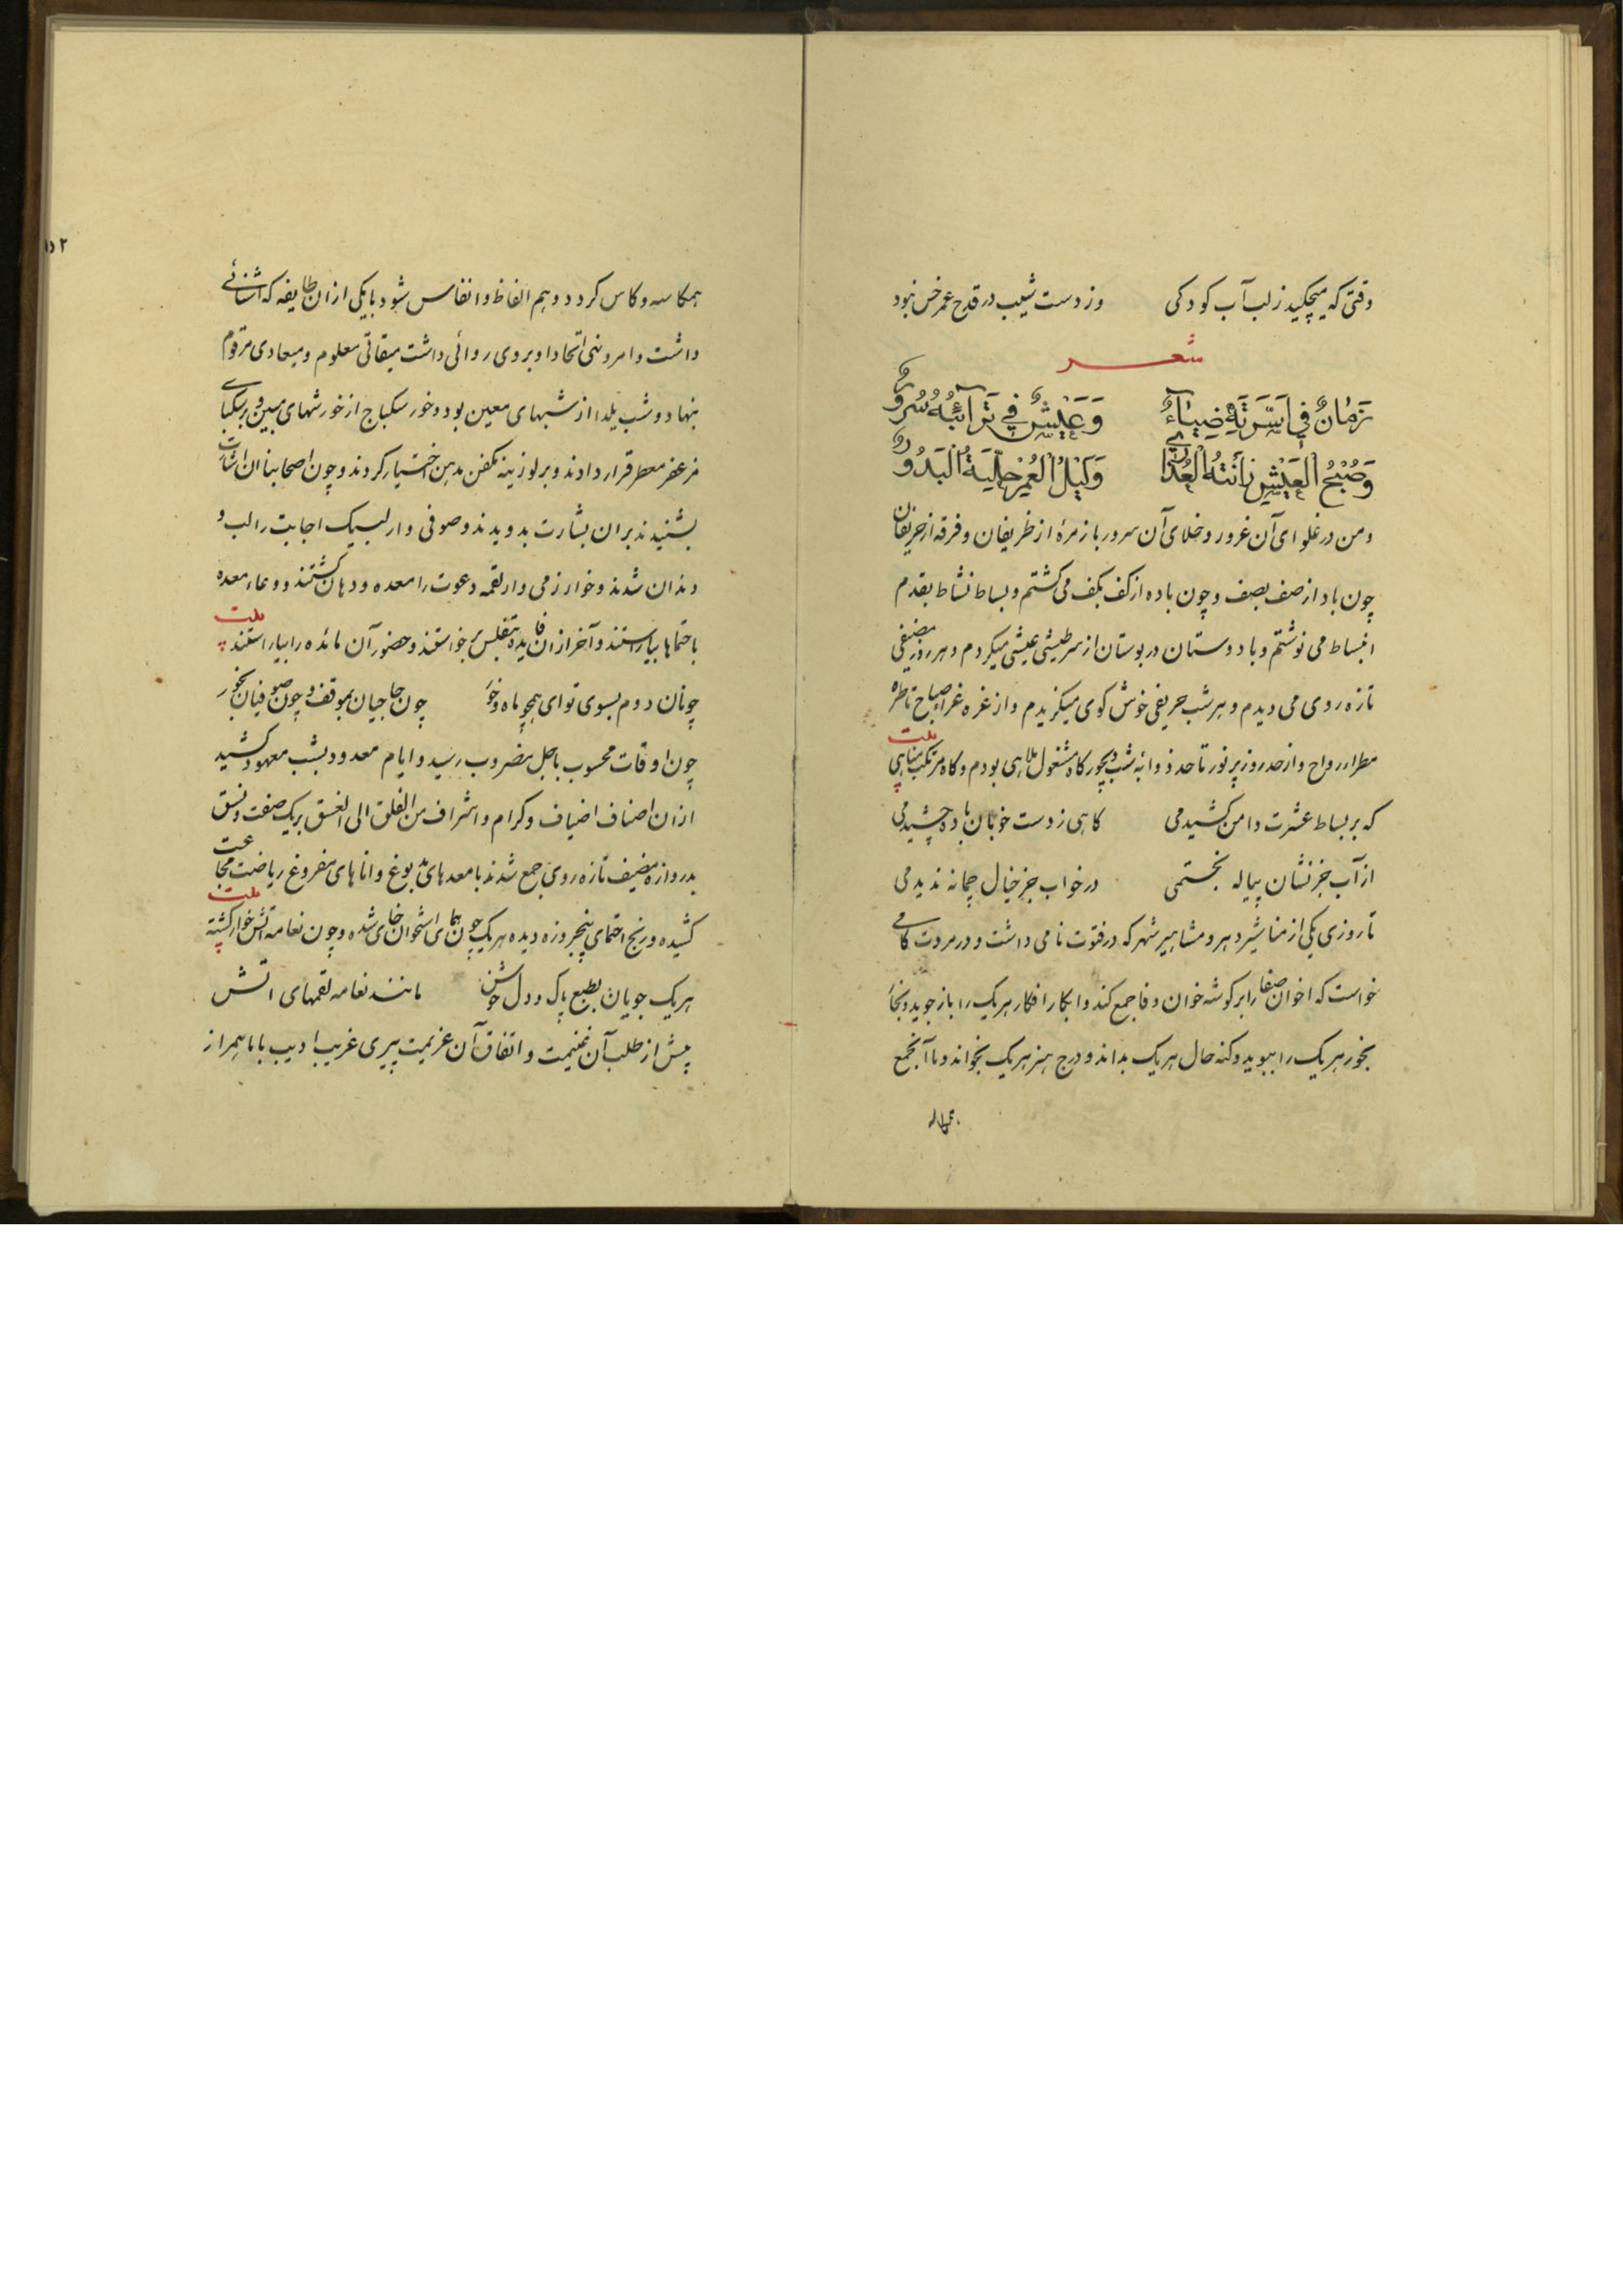 وقتی که میچکید ز لب آب کودکی وز دست شیب در قدح عمر خس نبود
شعر
زَمٰانٌ فِي اَسِّرَتِهِ ضِيٰاءٌ وَعَيْشٌ فِي تَرَائِبُهُ سُرُورٌ
وَصُبْحُ الْعَيْشِ زٰانَتْهُ الْعُذٰارٰي وَلَيْلُ الْعُمْرِ حِلْيَةُ الْبَدُورُ
و من در غلوای آن غرور و خلای آن سرور با زمرهٔ از ظریفان و فرقه از حریفان
چون باد از صف بصف و چون باده از کف بکف می کشتم و بساط نشاط بقدم
انبساط می نوشتم و با دوستان در بوستان از سر طیشی عیشی میکردم و هر روز مضیفی
تازه روی می دیدم و هر شب حریفی خوش کوی میکزیدم و از غره غراء صباح تا طره
مطرا رواح و از خد روز پر نور تا حد ذوابه شب دیجور کاه مشغول ملاهی بودم و کاه مرتکب مناهی
بیت
که بر بساط عشرت دامن کشیدمی کاهی ز دست خوبان باده چشیدمی
از آب جز نشان پیاله نجستمی در خواب جز خیال چمانه ندیدمی
تا روزی یکی از مناشیر دهر و مشاهیر شهر که در فتوت نامی داشت و در مروت کامی
خواست که اخوان صفا را بر کوشه خوان وفا جمع کند و ابکار افکار هر یک را باز جوید و بخار
بخور هر یک را ببوید و کنه حال هر یک بداند و درج هنر هر یک بخواند و با آنجمع
همکاسه
۱۵۲
همکاسه و کاس کردد و هم الفاظ و انفاس شود با یکی از ان طایفه که آشنائی
داشت و امر و نهی اتحاد او بر وی روائی داشت میقاتی معلوم و میعادی مرقوم
بنهاد و شب یلدا از شبهای معین بود و خور سکباج از خورشهای مبین و بر سکبای
مزعفر معطر قرار دادند و بر لوزینه مکفن مدهن اختیار کردند و چون اصحابنا ان اشارت
بشنیدند بر ان بشارت بدویدند و صوفی وار لبیک اجابت را لب و
دندان شدند و خوارزمی وار لقمه دعوت را معده و دهان کشتند و وعاء معده
باحتماها بپیراستند و آخر از ان فایده بتفلیس برخواستند و حضور آن مائده را بیاراستند
بیت
چونان دوم بسوی تو ای همچو ماه و خور چون حاجیان بموقف و چون صوفیان بخور
چون اوقات محسوب باجل مضروب رسید و ایام معدود بشب معهود کشید
از ان اضناف اضیاف و کرام و اشراف من الفلق الی الغسق بریک صفت و نسق
بدروازه مضیف تازه روی جمع شدند با معدهای مدبوغ و اناهای مفروغ ریاضت مجاعت
کشیده و رنج احتمای پنجروزه دیده هر یک چون همای استخوان خای شده و چون نعامه آتش خوار کشته
بیت
هر یک جویان بطبع پاک و دل خوش مانند نعامه لقمهای آتش
پیش از طلب آن غنیمت و اتفاق آن عزیمت پیری غریب ادیب با ما همراز